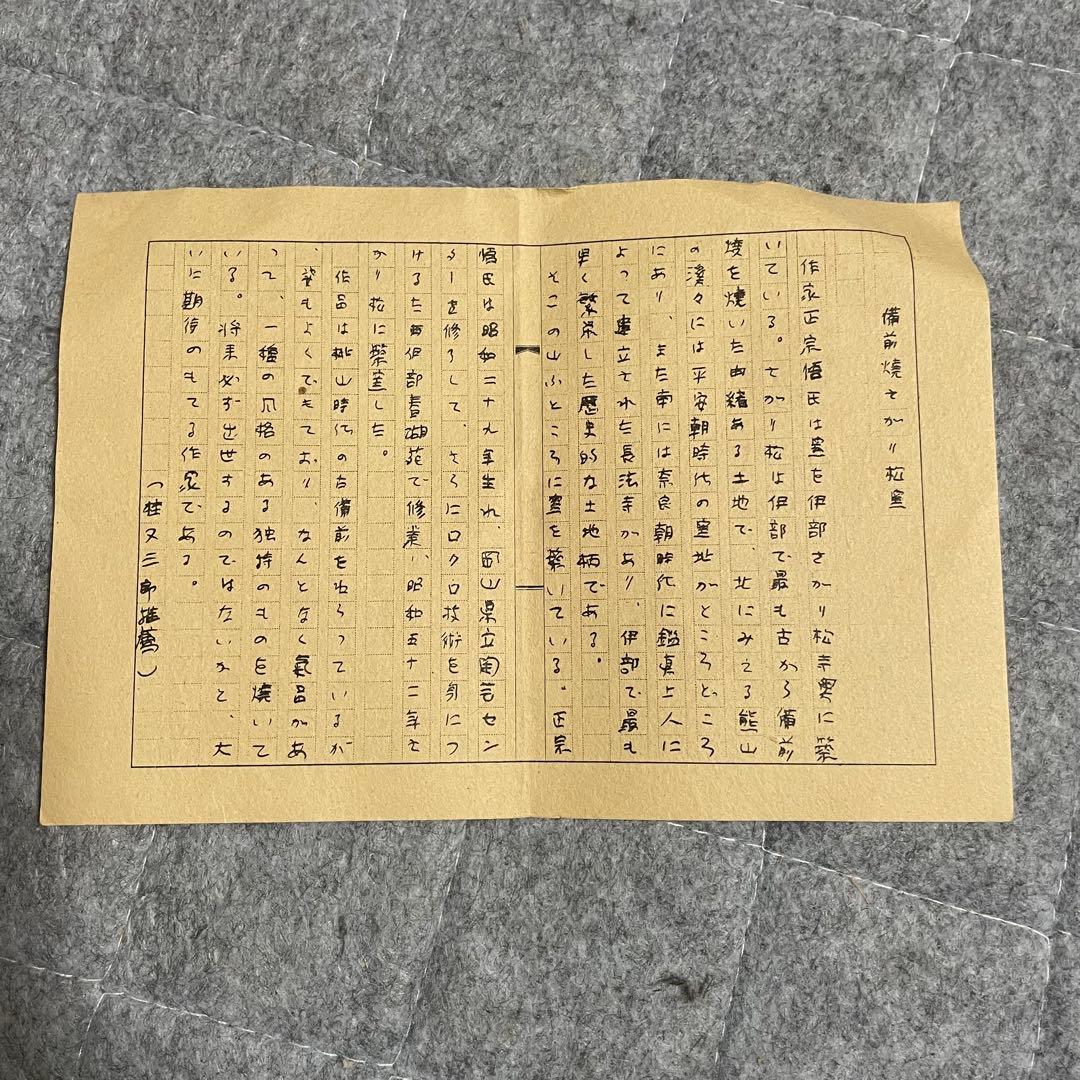 備前焼さがり松窯
作家正宗悟氏は窯を伊部さがり松寺奥に築
いている。さがり松は伊部で最も古から備前
焼を焼いた由緒ある土地で、北にみえる熊山
の溪々には平安朝時代の窯址がところどころ
にあり、また南には奈良朝時代に鑑真上人に
よって建立された長法寺があり、伊部で最も
早く繁栄した歴史的な土地柄である。
そこの山ふところに窯を築いている。正宗
悟氏は昭和二十九年生れ、岡山県立陶芸セン
ターを修了して、さらにロクロ技術を身につ
けるため伊部青湖苑で修業、昭和五十二年さ
がり松に築窯した。
作品は桃山時代の古備前をねらっているが
、姿もよくできており、なんとなく氣品があ
って、一種の風格のある独特のものを焼いて
いる。将来必ず出世するのではないかと、大
いに期待のもてる作家である。
(桂又三郎推薦)